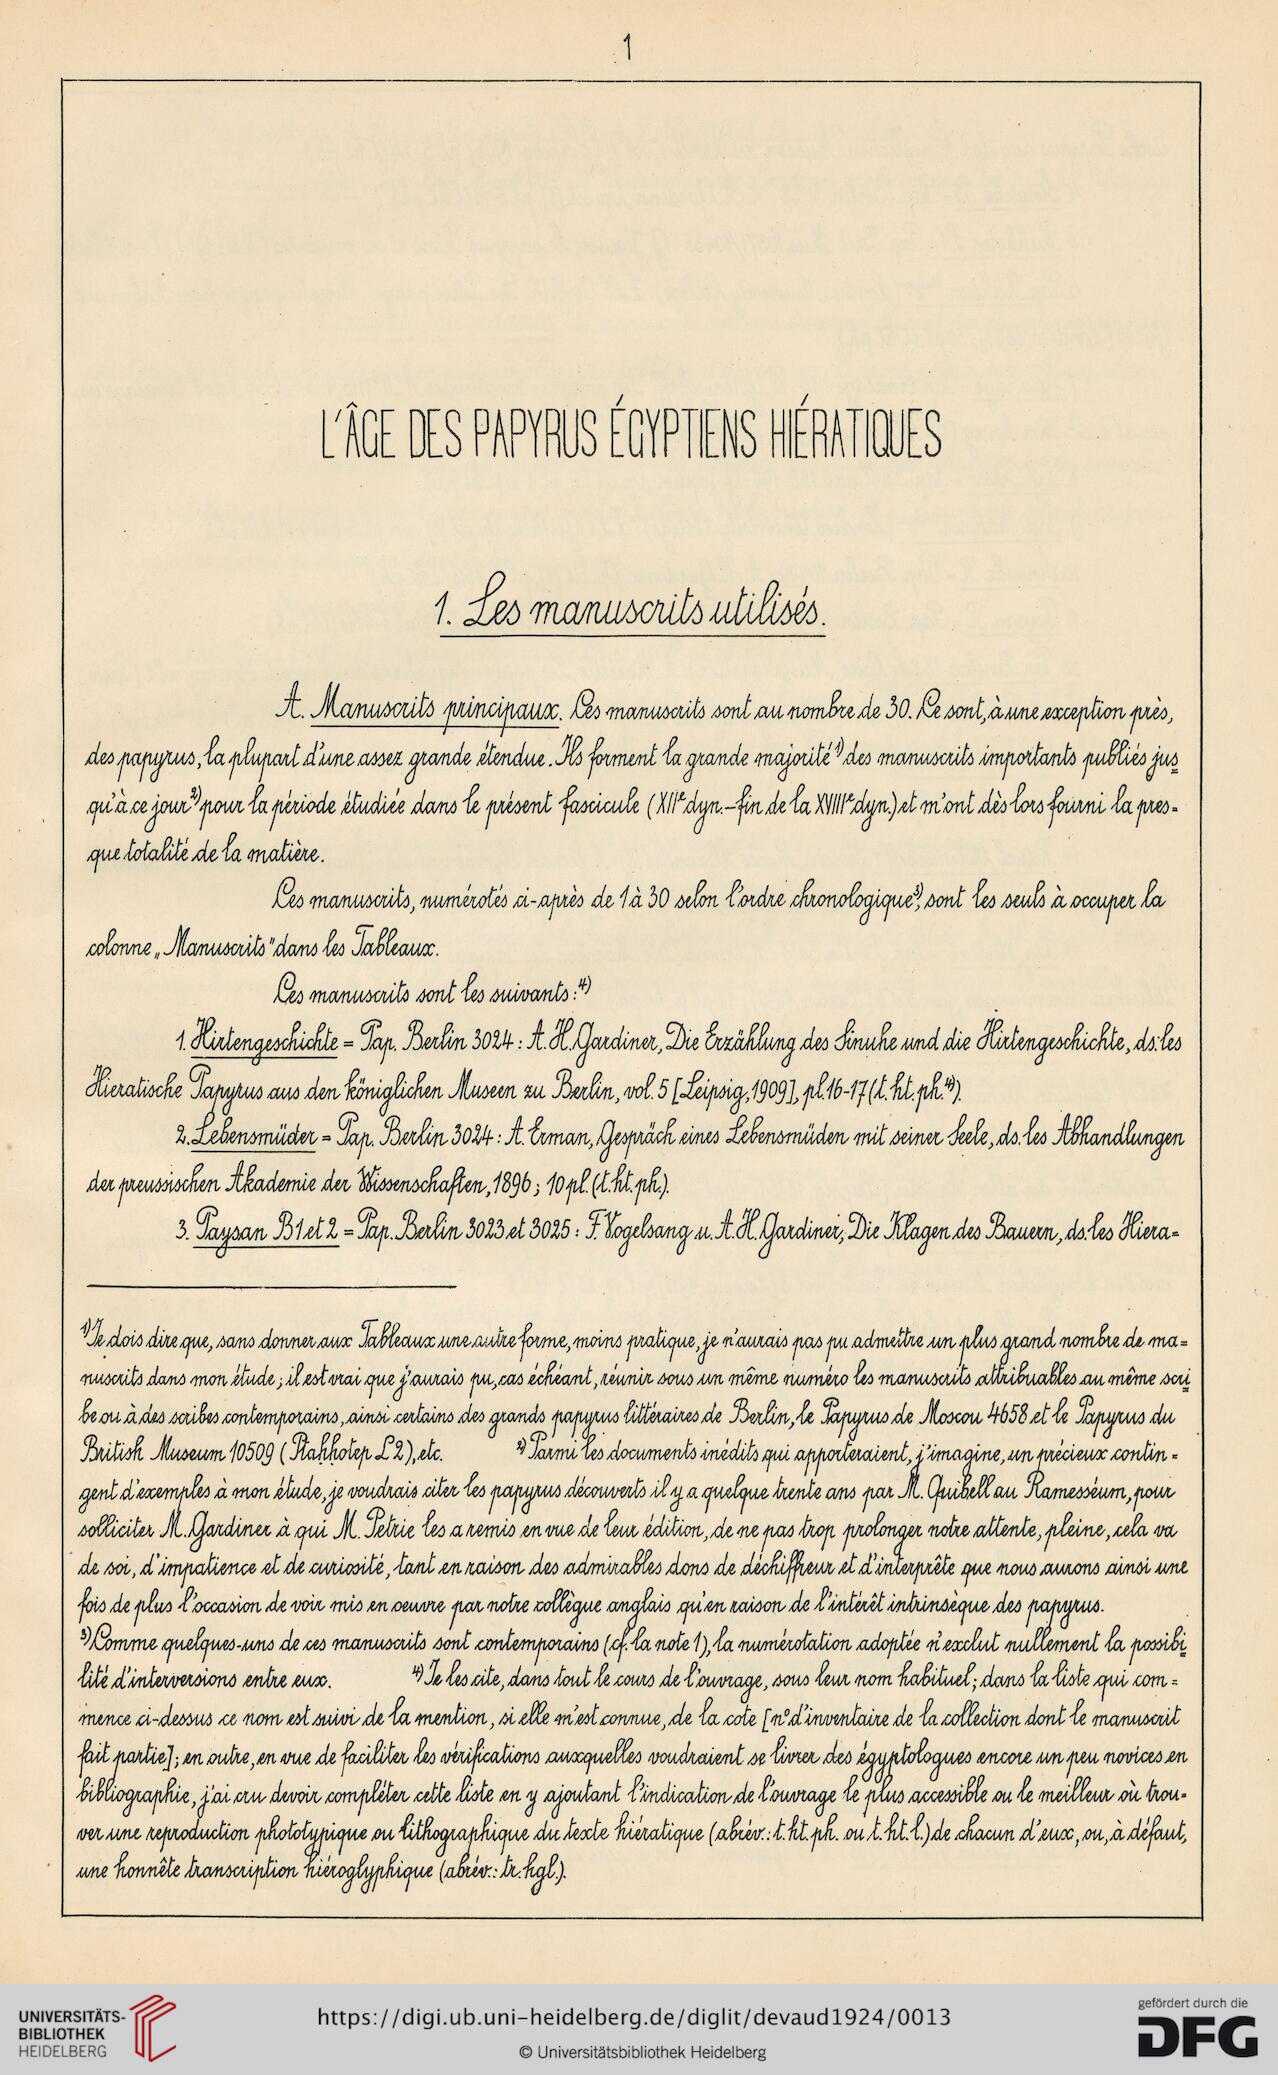 1
L'ÂGE DES PAPYRUS ÉGYPTIENS HIÉRATIQUES
1. Les manuscrits utilisés.
A. Manuscrits principaux. Ces manuscrits sont au nombre de 30. Ce sont, à une exception près,
des papyrus, la plupart d'une assez grande étendue. Ils forment la grande majorité¹⁾ des manuscrits importants publiés jus=
qu'à ce jour²⁾ pour la période étudiée dans le présent fascicule (XIIᵉ dyn.–fin de la XVIIIᵉ dyn.) et m'ont dès lors fourni la pres=
que totalité de la matière.
Ces manuscrits, numérotés ci-après de 1 à 30 selon l'ordre chronologique³⁾, sont les seuls à occuper la
colonne „Manuscrits" dans les Tableaux.
Ces manuscrits sont les suivants:⁴⁾
1. Hirtengeschichte = Pap. Berlin 3024: A. H. Gardiner, Die Erzählung des Sinuhe und die Hirtengeschichte, ds. les
Hieratische Papyrus aus den königlichen Museen zu Berlin, vol. 5 [Leipsig, 1909], pl. 16-17 (t. ht. ph.⁴⁾).
2. Lebensmüder = Pap. Berlin 3024: A. Erman, Gespräch eines Lebensmüden mit seiner Seele, ds. les Abhandlungen
der preussischen Akademie der Wissenschaften, 1896; 10 pl. (t. ht. ph.).
3. Paysan B1 et 2 = Pap. Berlin 3023 et 3025: F. Vogelsang u. A. H. Gardiner, Die Klagen des Bauern, ds. les Hiera=
¹⁾ Je dois dire que, sans donner aux Tableaux une autre forme, moins pratique, je n'aurais pas pu admettre un plus grand nombre de ma=
nuscrits dans mon étude; il est vrai que j'aurais pu, cas échéant, réunir sous un même numéro les manuscrits attribuables au même scri=
be ou à des scribes contemporains, ainsi certains des grands papyrus littéraires de Berlin, le Papyrus de Moscou 4658 et le Papyrus du
British Museum 10509 (Ptaḥḥotep L2), etc. ²⁾ Parmi les documents inédits qui apporteraient, j'imagine, un précieux contin=
gent d'exemples à mon étude, je voudrais citer les papyrus découverts il y a quelque trente ans par M. Quibell au Ramesséum, pour
solliciter M. Gardiner à qui M. Petrie les a remis en vue de leur édition, de ne pas trop prolonger notre attente, pleine, cela va
de soi, d'impatience et de curiosité, tant en raison des admirables dons de déchiffreur et d'interprête que nous aurons ainsi une
fois de plus l'occasion de voir mis en oeuvre par notre collègue anglais qu'en raison de l'intérêt intrinsèque des papyrus.
³⁾ Comme quelques-uns de ces manuscrits sont contemporains (cf. la note 1), la numérotation adoptée n'exclut nullement la possibi=
lité d'interversions entre eux. ⁴⁾ Je les cite, dans tout le cours de l'ouvrage, sous leur nom habituel; dans la liste qui com=
mence ci-dessus ce nom est suivi de la mention, si elle m'est connue, de la cote [n° d'inventaire de la collection dont le manuscrit
fait partie]; en outre, en vue de faciliter les vérifications auxquelles voudraient se livrer des égyptologues encore un peu novices en
bibliographie, j'ai cru devoir compléter cette liste en y ajoutant l'indication de l'ouvrage le plus accessible ou le meilleur où trou=
ver une reproduction phototypique ou lithographique du texte hiératique (abrév.: t. ht. ph. ou t. ht. l.) de chacun d'eux, ou, à défaut,
une honnête transcription hiéroglyphique (abrév.: tr. hgl.).
UNIVERSITÄTS-
BIBLIOTHEK
HEIDELBERG
https://digi.ub.uni-heidelberg.de/diglit/devaud1924/0013
© Universitätsbibliothek Heidelberg
gefördert durch die
DFG